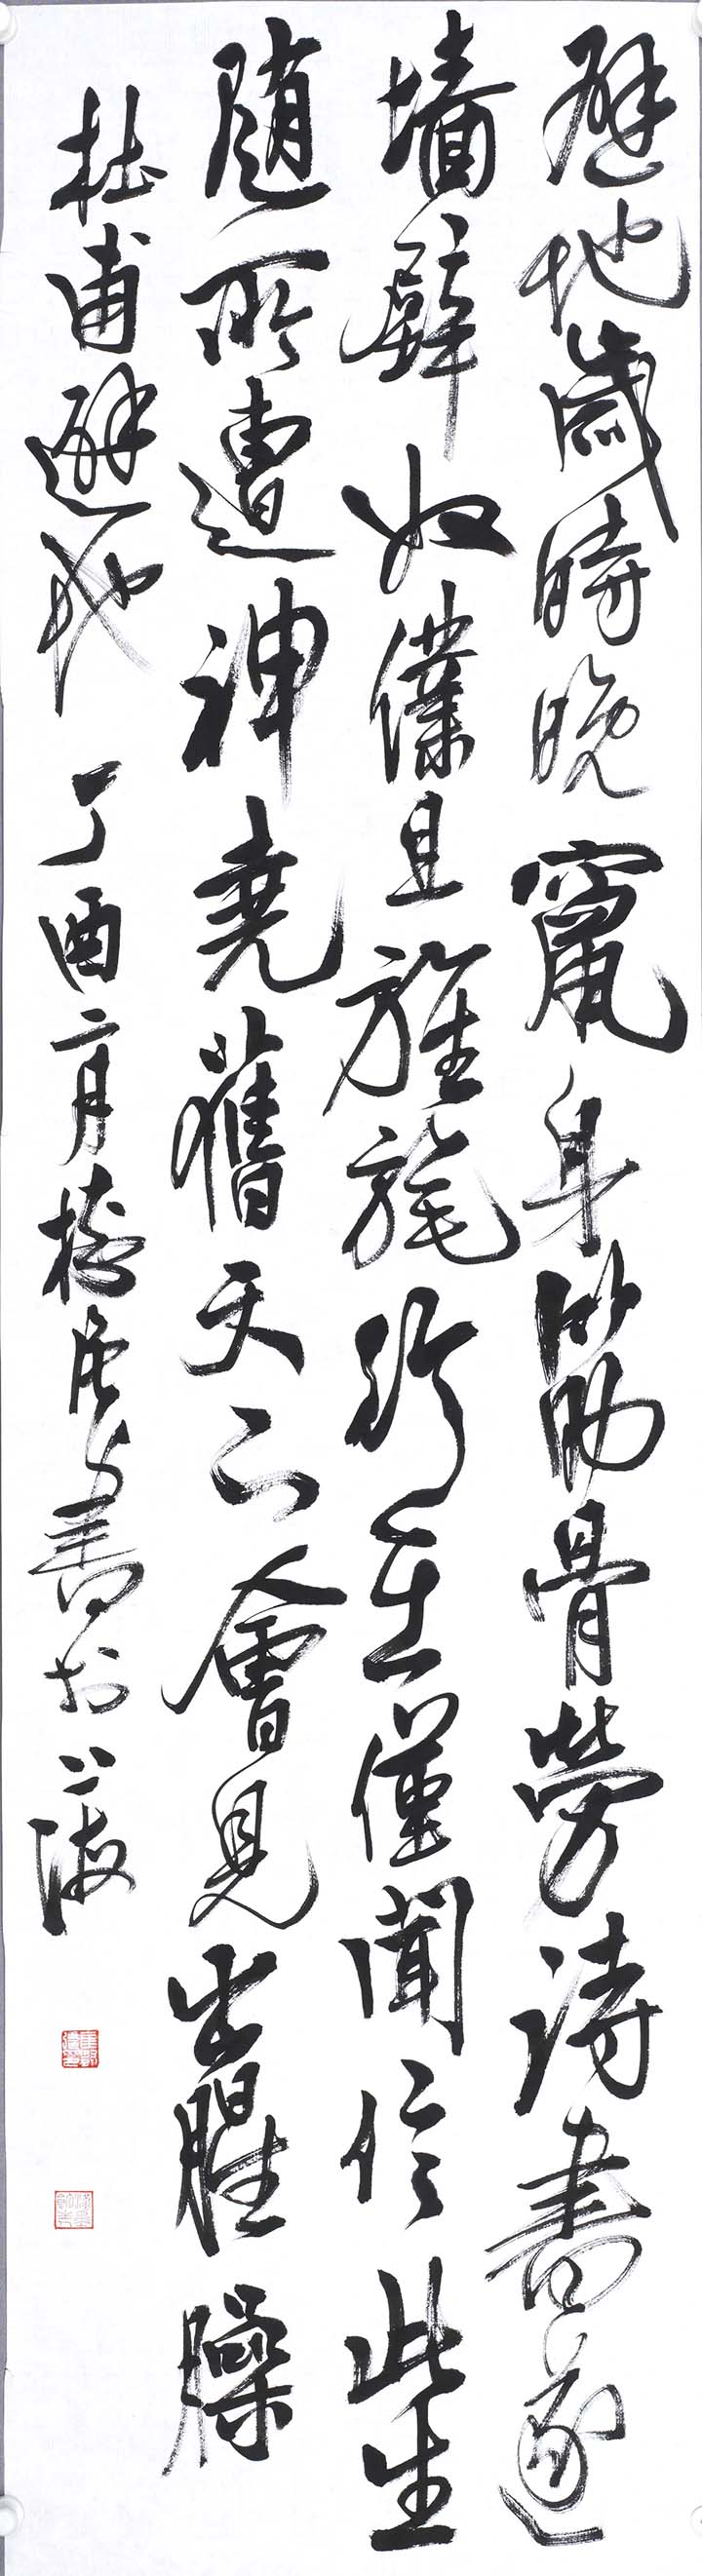 避地歲時晚竄身筋骨勞詩書遂
墙壁奴僕且旌旄行在僅聞信此生
隨所遭神堯舊天下會見出腥臊
杜甫避地 丁酉二月 書於上海